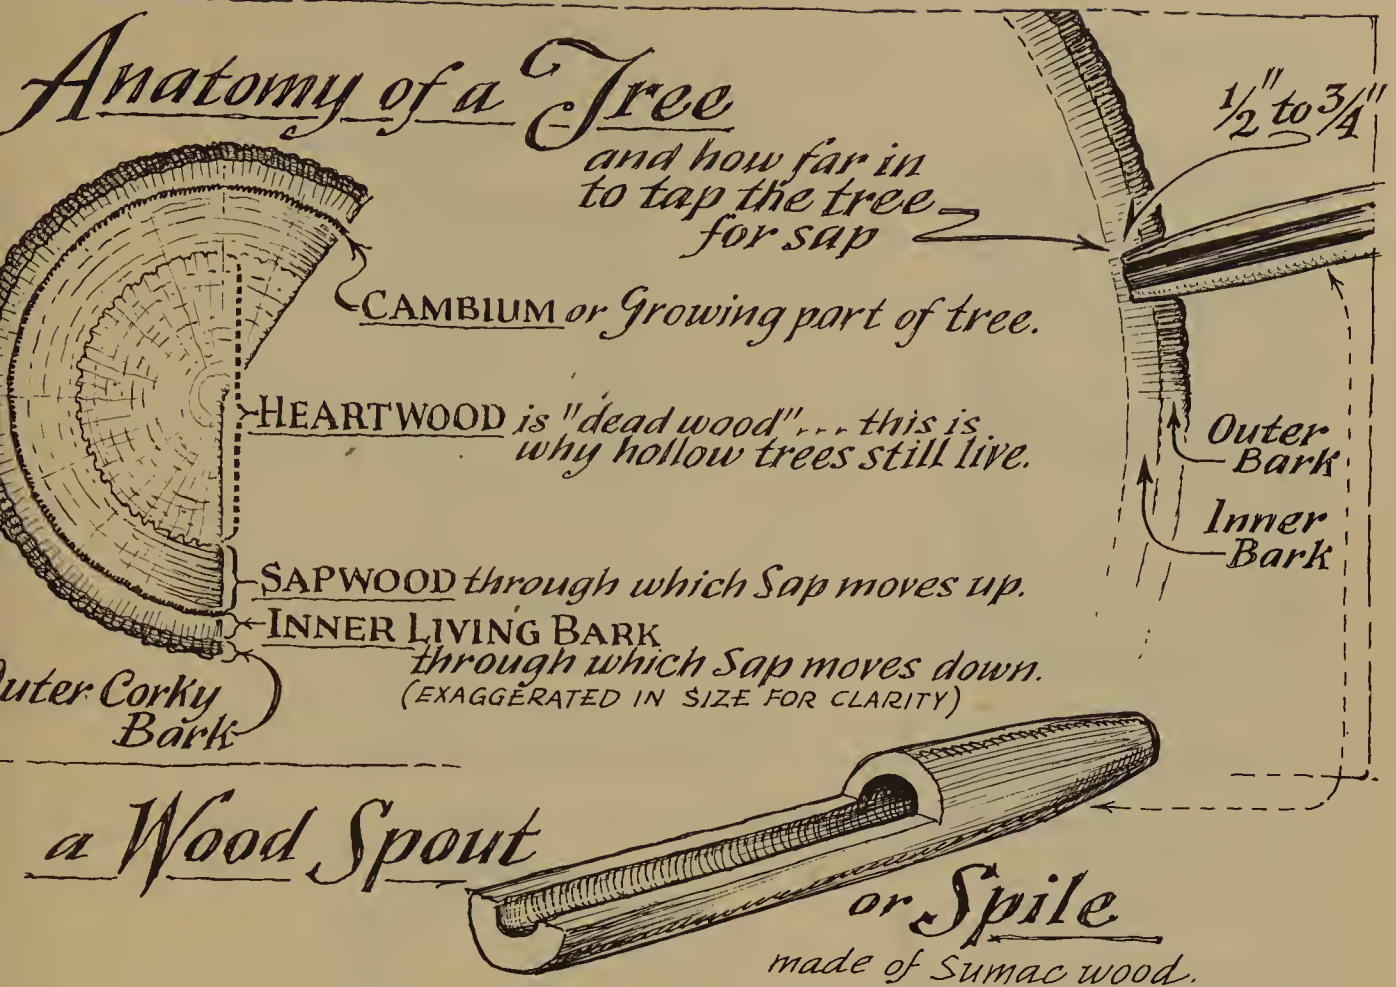 Anatomy of a Tree
and how far in
to tap the tree
for sap
1/2" to 3/4"
CAMBIUM or Growing part of tree.
HEARTWOOD is "dead wood"... this is
why hollow trees still live.
Outer
Bark
Inner
Bark
SAPWOOD through which Sap moves up.
INNER LIVING BARK
through which Sap moves down.
(EXAGGERATED IN SIZE FOR CLARITY)
uter Corky
Bark
a Wood Spout
or Spile
made of Sumac wood.